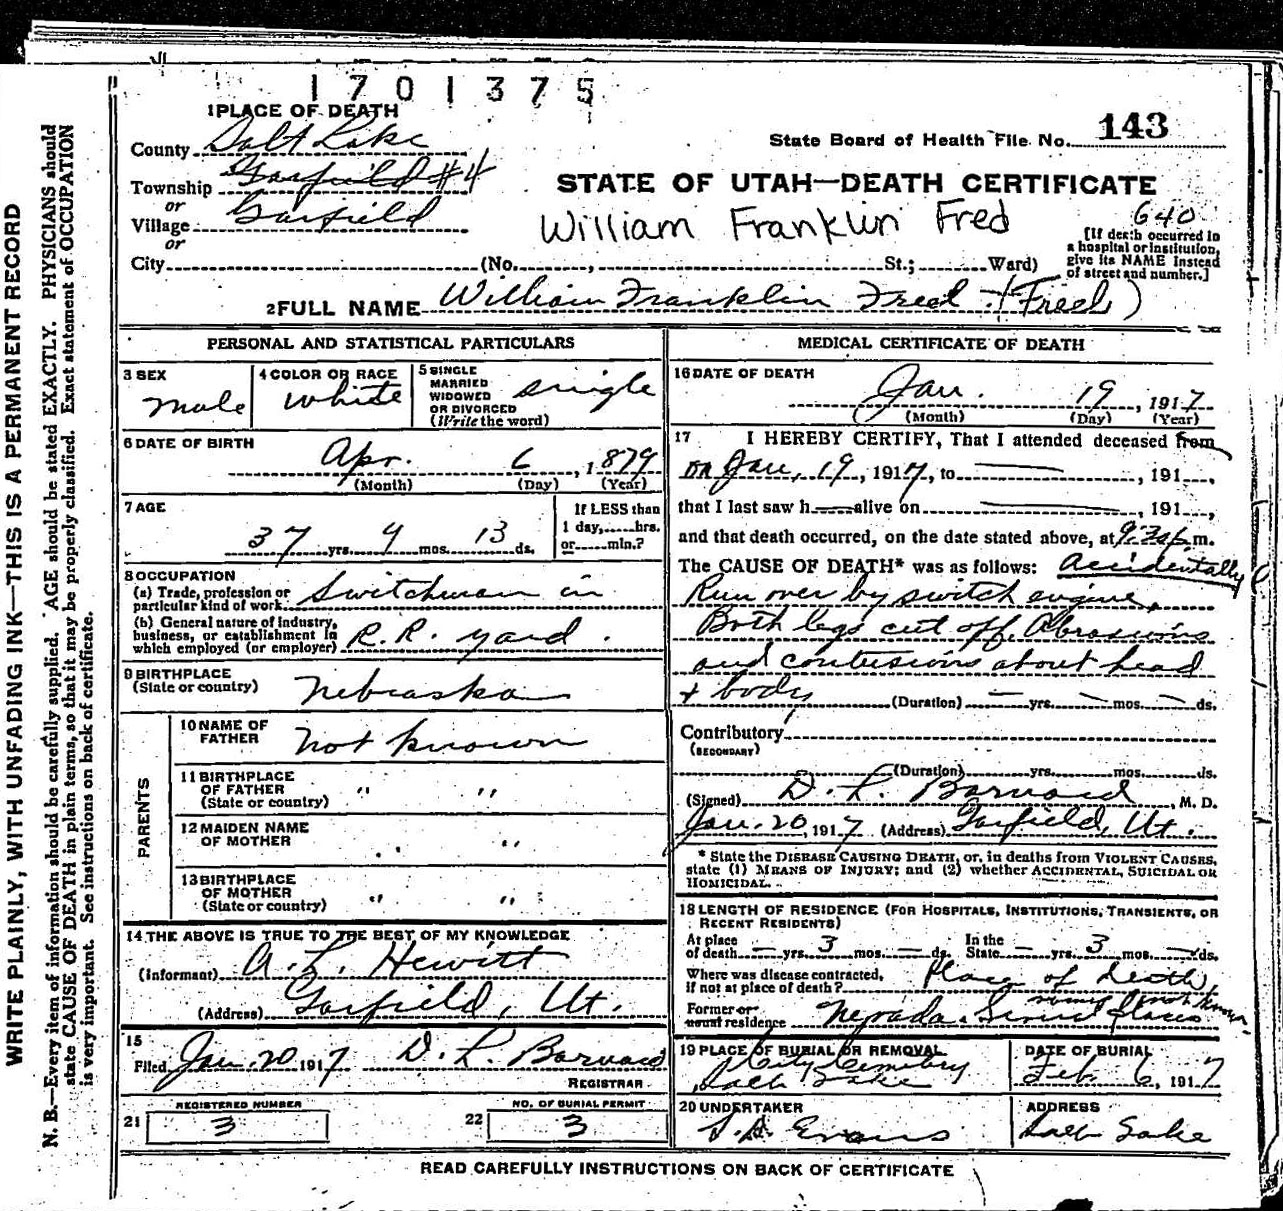 1701375
1 PLACE OF DEATH
State Board of Health File No. 143
County Salt Lake
Township Garfield #4
or
Village Garfield
or
STATE OF UTAH—DEATH CERTIFICATE
William Franklin Fred
640
[If death occurred in a hospital or institution, give its NAME instead of street and number.]
City (No. , St.; Ward)
2 FULL NAME William Franklin Fred (Fred)
PERSONAL AND STATISTICAL PARTICULARS
3 SEX
Male
4 COLOR OR RACE
White
5 SINGLE
MARRIED
WIDOWED
OR DIVORCED
(Write the word)
Single
6 DATE OF BIRTH
Apr. 6, 1879
(Month) (Day) (Year)
7 AGE
37 yrs. 9 mos. 13 ds.
If LESS than
1 day, hrs.
or min.?
8 OCCUPATION
(a) Trade, profession or
particular kind of work Switchman in
(b) General nature of industry,
business, or establishment in
which employed (or employer) R.R. yard.
9 BIRTHPLACE
(State or country) Nebraska
PARENTS
10 NAME OF
FATHER not known
11 BIRTHPLACE
OF FATHER
(State or country) " "
12 MAIDEN NAME
OF MOTHER " "
13 BIRTHPLACE
OF MOTHER
(State or country) " "
14 THE ABOVE IS TRUE TO THE BEST OF MY KNOWLEDGE
(Informant) A. L. Hewitt
(Address) Garfield, Ut.
15
Filed Jan. 20 1917 D. L. Barnard
REGISTRAR
REGISTERED NUMBER
21 3
NO. OF BURIAL PERMIT
22 3
MEDICAL CERTIFICATE OF DEATH
16 DATE OF DEATH
Jan. 19, 1917
(Month) (Day) (Year)
17 I HEREBY CERTIFY, That I attended deceased from
on Jan. 19, 1917, to , 191 ,
that I last saw h alive on , 191 ,
and that death occurred, on the date stated above, at 9:30 p.m.
The CAUSE OF DEATH* was as follows: Accidentally
Run over by switch engine.
Both legs cut off. Abrasions
and contusions about head
+ body (Duration) — yrs. — mos. — ds.
Contributory
(SECONDARY)
(Duration) yrs. mos. ds.
(Signed) D. L. Barnard, M. D.
Jan. 20, 1917 (Address) Garfield, Ut.
* State the DISEASE CAUSING DEATH, or, in deaths from VIOLENT CAUSES,
state (1) MEANS OF INJURY; and (2) whether ACCIDENTAL, SUICIDAL OR
HOMICIDAL.
18 LENGTH OF RESIDENCE (FOR HOSPITALS, INSTITUTIONS, TRANSIENTS, OR
RECENT RESIDENTS)
At place
of death — yrs. 3 mos. — ds. In the
State — yrs. 3 mos. — ds.
Where was disease contracted,
if not at place of death? Place of death,
Former or
usual residence Nevada.
19 PLACE OF BURIAL OR REMOVAL
City Cemetery
Salt Lake
DATE OF BURIAL
Feb. 6, 1917
20 UNDERTAKER
Evans
ADDRESS
Salt Lake
READ CAREFULLY INSTRUCTIONS ON BACK OF CERTIFICATE
WRITE PLAINLY, WITH UNFADING INK—THIS IS A PERMANENT RECORD
N. B.—Every item of information should be carefully supplied. AGE should be stated EXACTLY. PHYSICIANS should
state CAUSE OF DEATH in plain terms, so that it may be properly classified. Exact statement of OCCUPATION
is very important. See instructions on back of certificate.